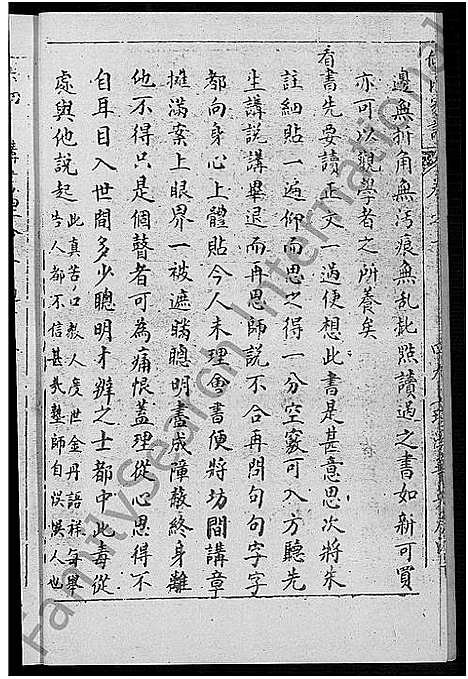 邊無折角無污痕無亂批點讀過之書如新可買
亦可以觀學者之所養矣
看書先要讀正文一過便想此書是甚意思次將朱
註細貼一遍仰而思之得一分空竅可入方聽先
生講說講畢退而再思師說不合再問句句字字
都向身心上體貼今人未理會書便將坊間講章
攤滿案上眼界一被遮瞞聰明盡成障蔽終身離
他不得只是個瞽者可為痛恨蓋理從心思得不
自耳目入世間多少聰明才辨之士都中此毒從
處與他說起
此真苦口教人度世金丹語祥每舉
告人都不信甚哉塾師自誤誤人也
FamilySearch International